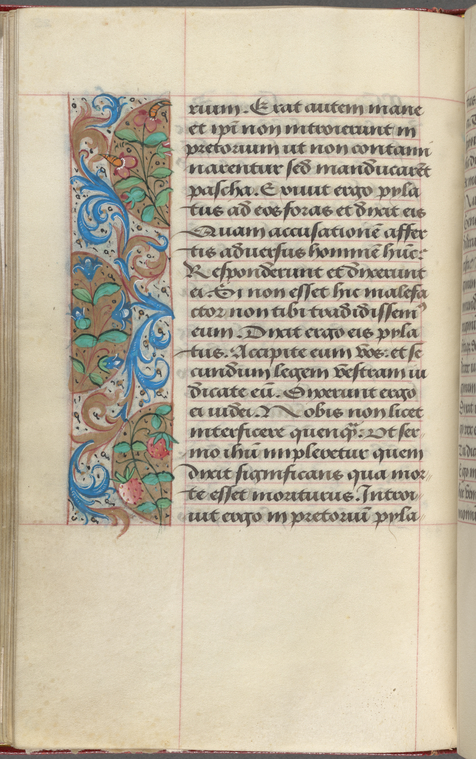 rium. Erat autem mane
et ipi̅ non introierunt in
pretorium ut non contami
narentur sed manducare̅t
pascha. Exiuit ergo pyla
tus ad eos foras et dixit eis
Quam accusatione̅ affer
tis aduersus homine̅ hu̅c:
Responderunt et dixerunt
ei. Si non esset hic malefa
ctor non tibi tradidissemꝰ
eum. Dixit ergo eis pyla
tus. Accipite eum vos: et se
cundium legem vestram iu
dicate eu̅. Dixerunt ergo
ei iudei. Nobis non licet
interficere quenq̅. Ut ser
mo ihu̅ impleretur quem
dixit significans qua mor
te esset moriturus. Introi
uit ergo in pretoriu̅ pyla